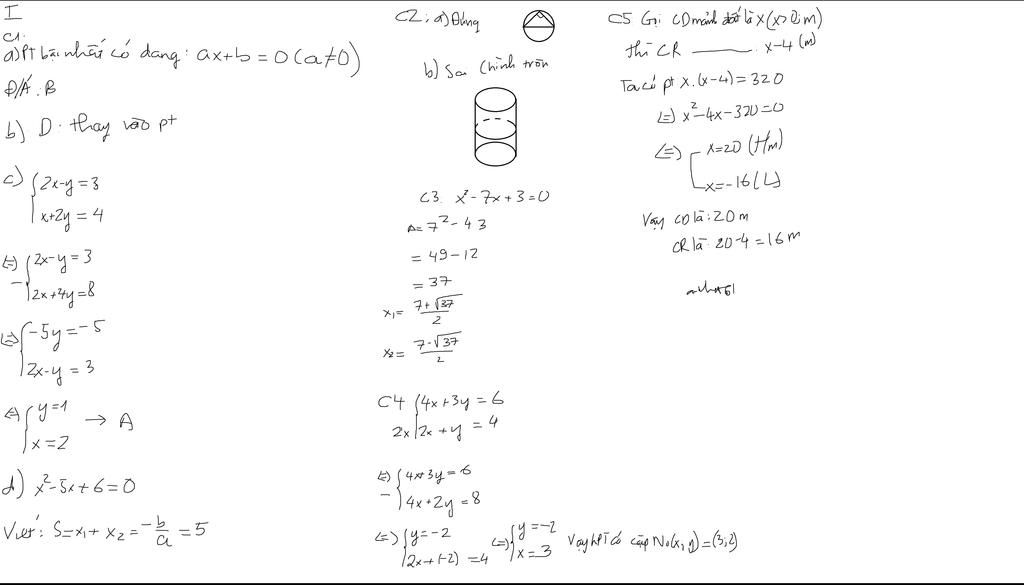 I
C1:
a) PT bậc nhất có dạng: ax+b=0 (a≠0)
Đ/Á: B
b) D. thay vào pt
c) {2x-y=3
x+2y=4
(=) {2x-y=3
- 2x+4y=8
(=) {-5y=-5
2x-y=3
(=) {y=1 → A
x=2
d) x²-5x+6=0
Viét: S=x₁+x₂=-b/a=5
C2: a) Đúng
b) Sai hình tròn
C3. x²-7x+3=0
Δ=7²-4.3
=49-12
=37
x₁= (7+√37)/2
x₂= (7-√37)/2
C4 {4x+3y=6
2x 2x+y=4
(=) {4x+3y=6
- 4x+2y=8
(=) {y=-2 (=) {y=-2
2x+(-2)=4 x=3 Vậy hPT có cặp No(x,y)=(3;2)
C5 Gọi CD mảnh đất là x (x>0; m)
thì CR ——— x-4 (m)
Ta có pt x.(x-4)=320
(=) x²-4x-320=0
(=) [x=20 (t/m)
x=-16 (L)
Vậy CD là: 20 m
CR là: 20-4=16 m